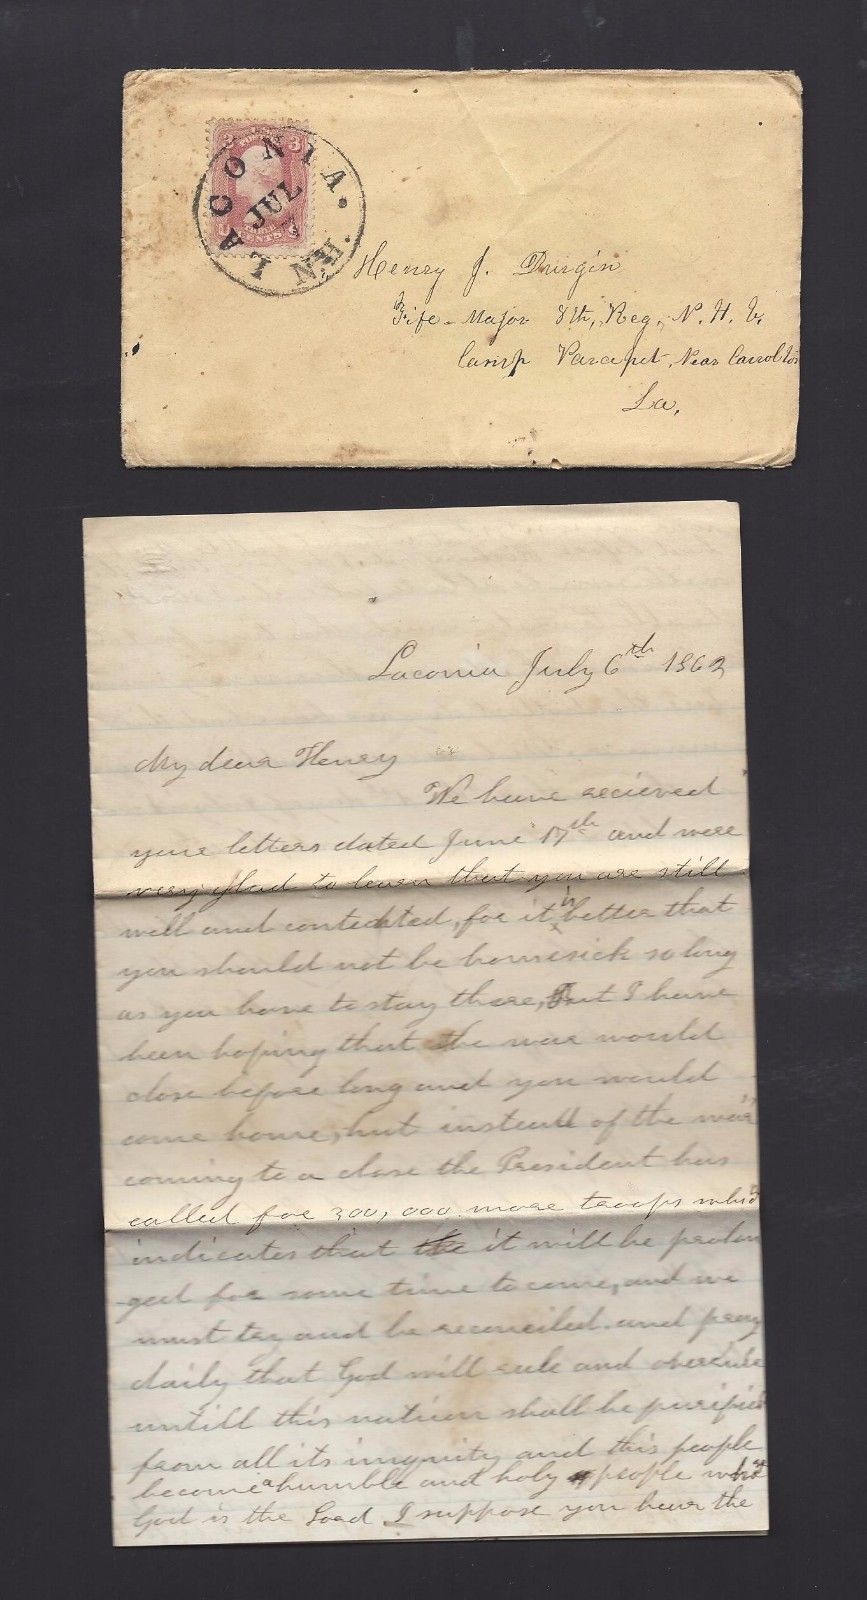 LACONIA. N.H.
JUL
7
3
CENTS
Henry J. Durgin
Fife-Major 8th, Reg, N. H. V.
Camp Parapet, Near Carrollton
La,
Laconia July 6th 1862
My dear Henry
We have recieved
your letters dated June 17th and were
very glad to learn that you are still
well and contented, for it is better that
you should not be homesick so long
as you have to stay there, But I have
been hoping that the war would
close before long and you would
come home, but instead of the war's
coming to a close the President has
called for 300,000 more troops which
indicates that the it will be prolon
ged for some time to come, and we
must try and be reconciled and pray
daily that God will rule and overrule
untill this nation shall be purified
from all its iniquity and this people
become a humble and holy people whose
God is the Lord I suppose you hear the